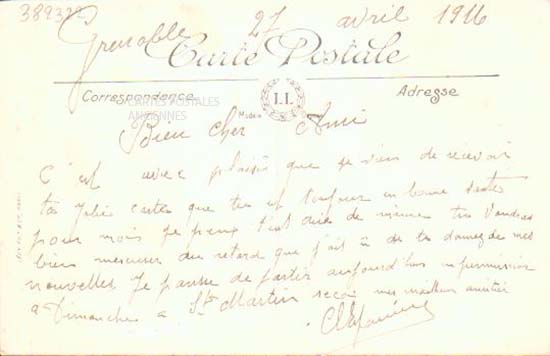 389322
Grenoble 27 avril 1916
Carte Postale
Correspondance
Adresse
CARTES POSTALES
ANCIENNES
LL
Bien cher Ami
C'est avec plaisir que je viens de recevoir
ta jolie carte que tu es toujours en bonne santé
pour moi je peux t'en dire de même tu voudras
bien du retard que j'ait à de te donnez de mes
nouvelles Je pense de partir aujourd'hui permission
a Dimanche a St Martin reçoi mes meilleur amitié